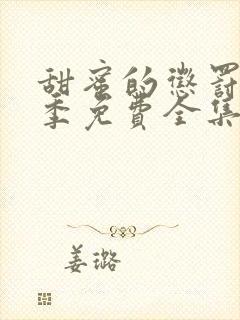 甜蜜的惩罚
季免费全集
姜璐